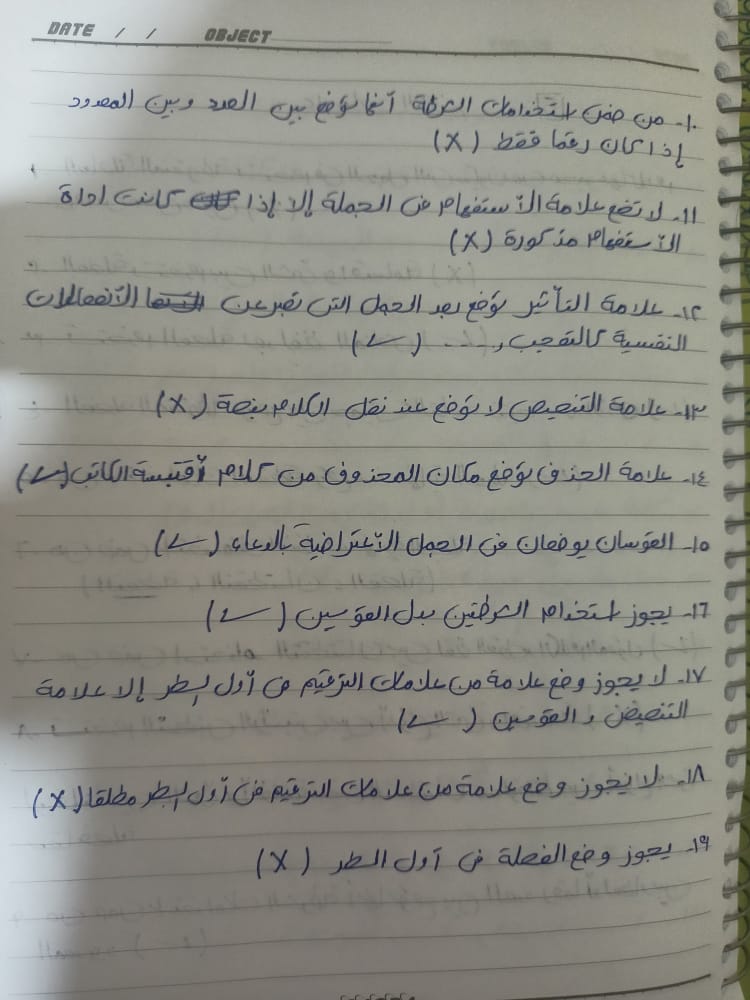 DATE / / OBJECT
١٠- من ضمن استخدامات الشرطة أنها توضع بين العدد وبين المعدود
إذا كان رقما فقط (X)
١١- لا تضع علامة الأستفهام في الجملة إلا إذا كانت اداة
الأستفهام مذكورة (X)
١٢- علامة التأثير توضع بعد الجمل التي تعبر عن الأنفعالات
النفسية كالتعجب و... (✓)
١٣- علامة التنصيص لا توضع عند نقل الكلام بنصة (X)
١٤- علامة الحذف توضع مكان المحذوف من كلام أقتبسة الكاتب (✓)
١٥- القوسان يوضعان في الجمل الأعتراضية بالدعاء (✓)
١٦- يجوز استخدام الشرطتين بدل القوسين (✓)
١٧- لا يجوز وضع علامة من علامات الترقيم في أول السطر إلا علامة
التنصيص والقوسين (✓)
١٨- لا يجوز وضع علامة من علامات الترقيم في أول السطر مطلقا (X)
١٩- يجوز وضع الفصلة في أول السطر (X)